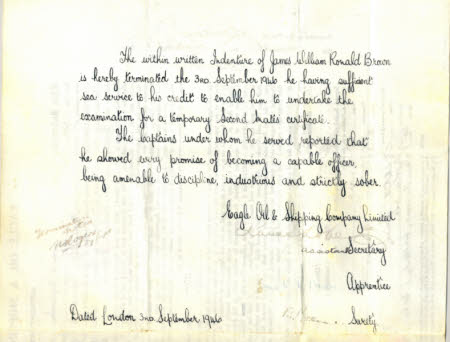 The within written Indenture of James William Ronald Brown
is hereby terminated the 3rd September 1946 he having sufficient
sea service to his credit to enable him to undertake the
examination for a temporary Second Mate's certificate.
The captains under whom he served reported that
he showed every promise of becoming a capable officer
being amenable to discipline, industrious and strictly sober.
Eagle Oil & Shipping Company Limited
assistant Secretary
Apprentice
Surety
Dated London 3rd September 1946